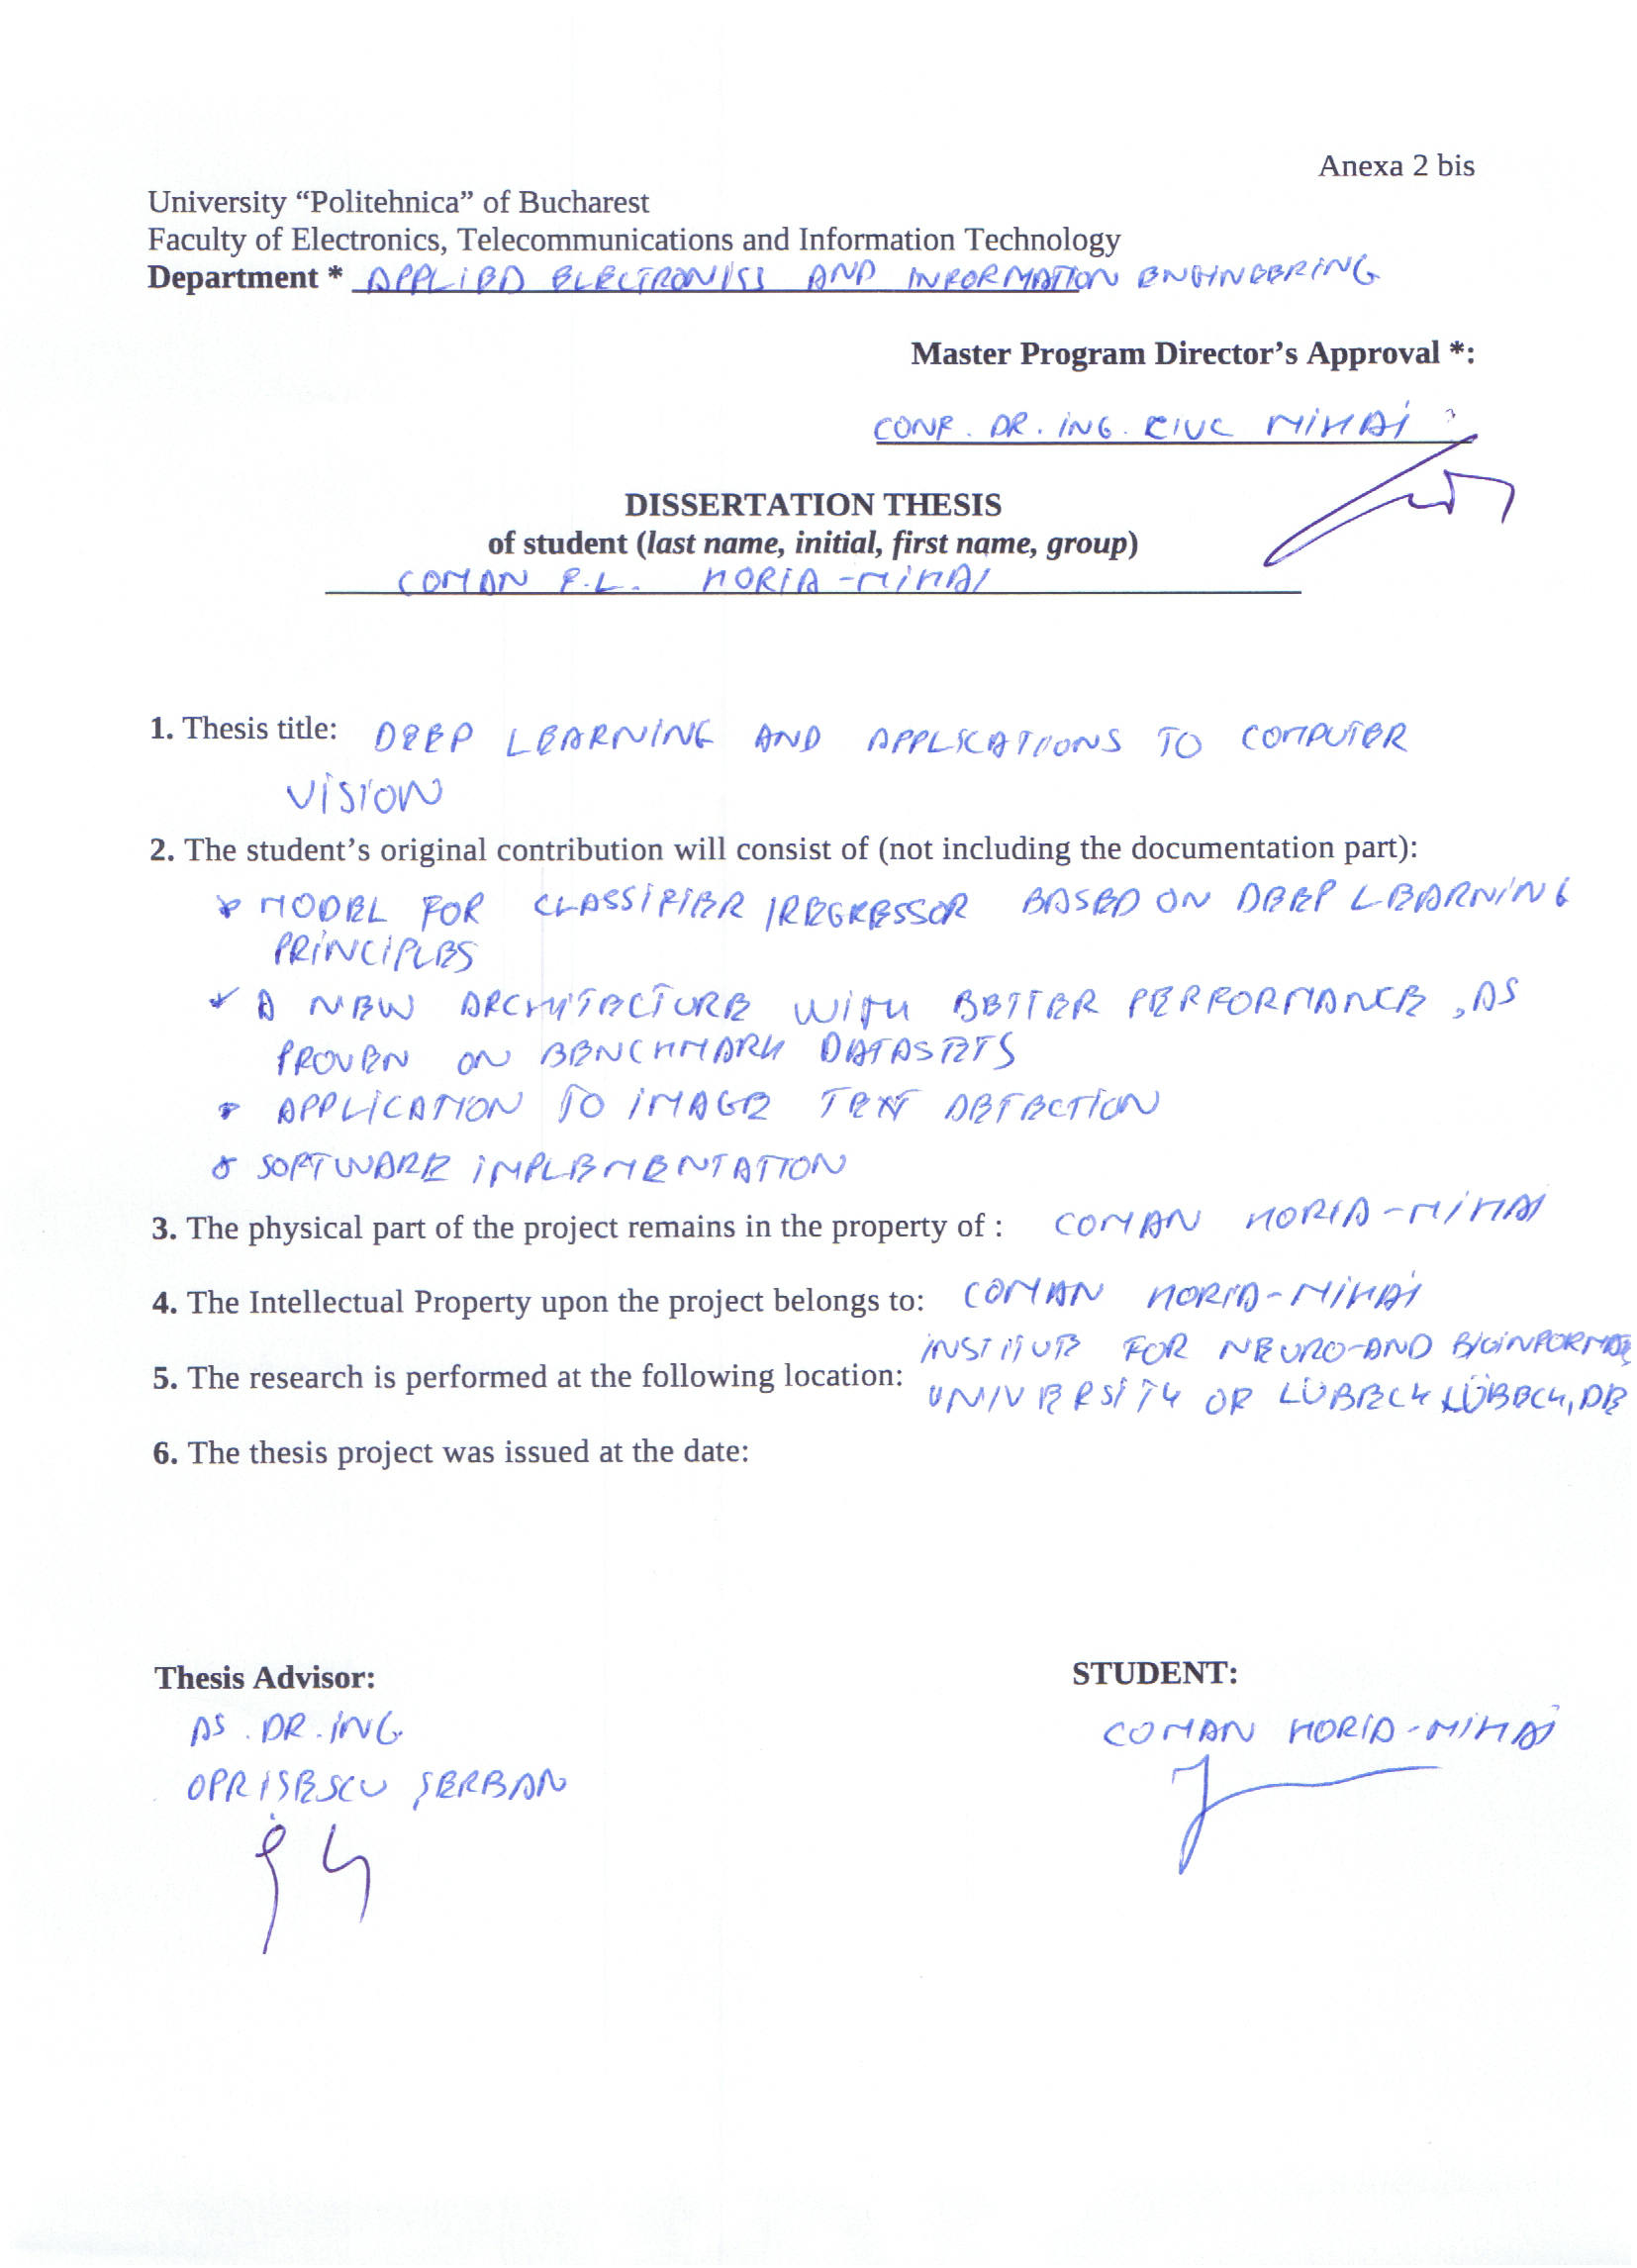 Anexa 2 bis
University “Politehnica” of Bucharest
Faculty of Electronics, Telecommunications and Information Technology
Department * APPLIED ELECTRONICS AND INFORMATION ENGINEERING
Master Program Director’s Approval *:
CONF. DR. ING. CIUC MIHAI
DISSERTATION THESIS
of student (last name, initial, first name, group)
COMAN F.L. HORIA-MIHAI
1. Thesis title: DEEP LEARNING AND APPLICATIONS TO COMPUTER
VISION
2. The student’s original contribution will consist of (not including the documentation part):
* MODEL FOR CLASSIFIER/REGRESSOR BASED ON DEEP LEARNING
PRINCIPLES
* A NEW ARCHITECTURE WITH BETTER PERFORMANCE, AS
PROVEN ON BENCHMARK DATASETS
* APPLICATION TO IMAGE TEXT DETECTION
* SOFTWARE IMPLEMENTATION
3. The physical part of the project remains in the property of : COMAN HORIA-MIHAI
4. The Intellectual Property upon the project belongs to: COMAN HORIA-MIHAI
INSTITUTE FOR NEURO-AND
5. The research is performed at the following location: UNIVERSITY OF LÜBECK LÜBECK, DE
6. The thesis project was issued at the date:
Thesis Advisor:
STUDENT:
AS. DR. ING.
COMAN HORIA-MIHAI
OPRISESCU ȘERBAN